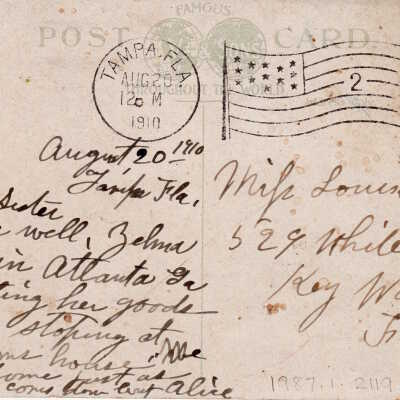 FAMOUS
POST CARD
THROUGHOUT THE WORLD
TAMPA, FLA.
AUG 20
12 M
1910
2
August 20 - 1910
Tampa Fla.
Sister
well, Zelma
in Atlanta Ga
ting her goods
stoping at
house. We
come just as
Alice
Miss Louis
529 White
Key W
F
1987.1.2119